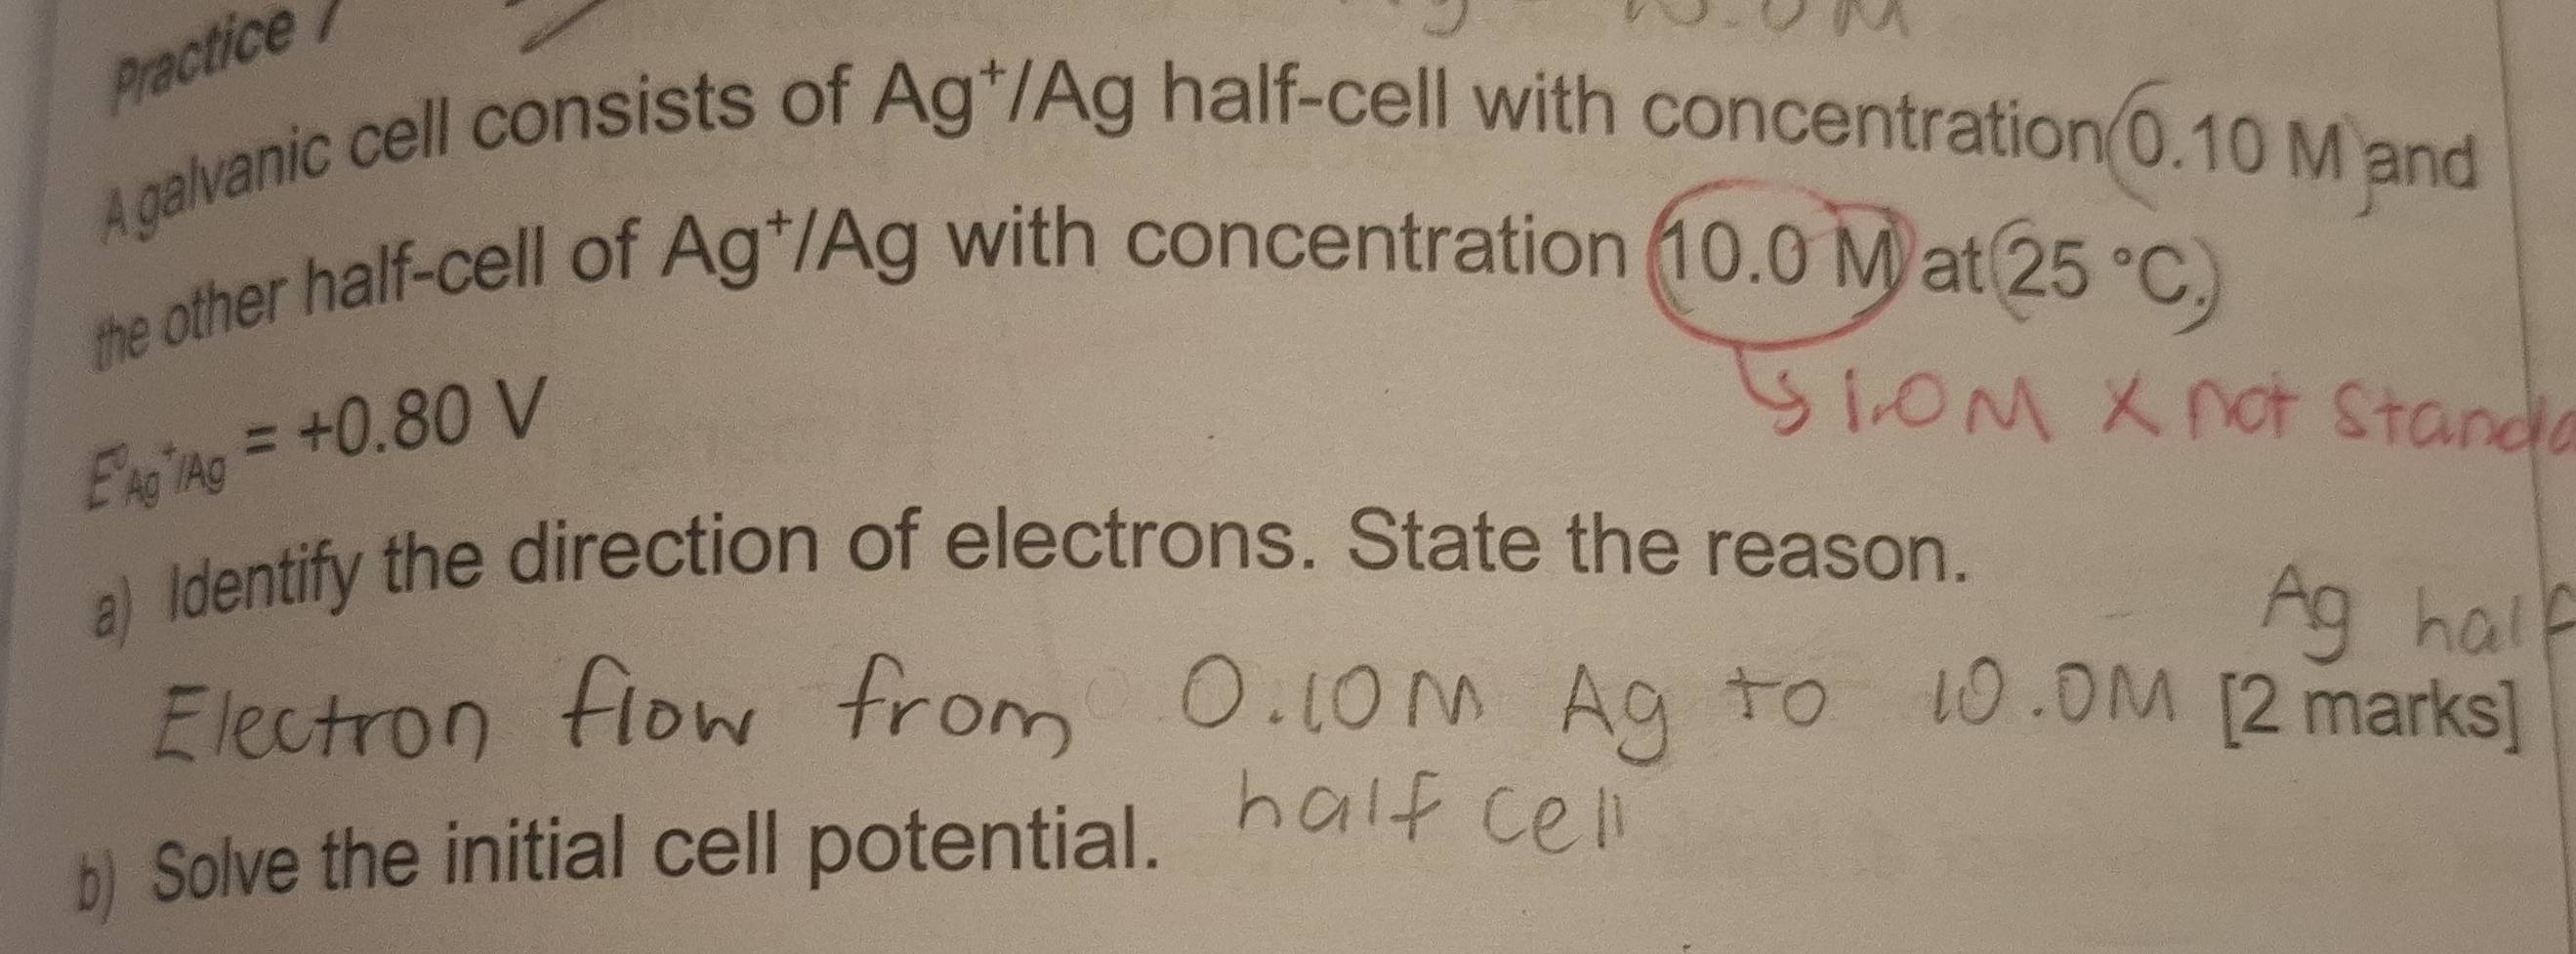 Practice 7
A galvanic cell consists of Ag⁺/Ag half-cell with concentration 0.10 M and
the other half-cell of Ag⁺/Ag with concentration 10.0 M at 25 °C.
↳ 1.0 M X not standa
E°Ag⁺/Ag = +0.80 V
a) Identify the direction of electrons. State the reason.
Ag half
Electron flow from 0.10M Ag to 10.0M [2 marks]
half cell
b) Solve the initial cell potential.